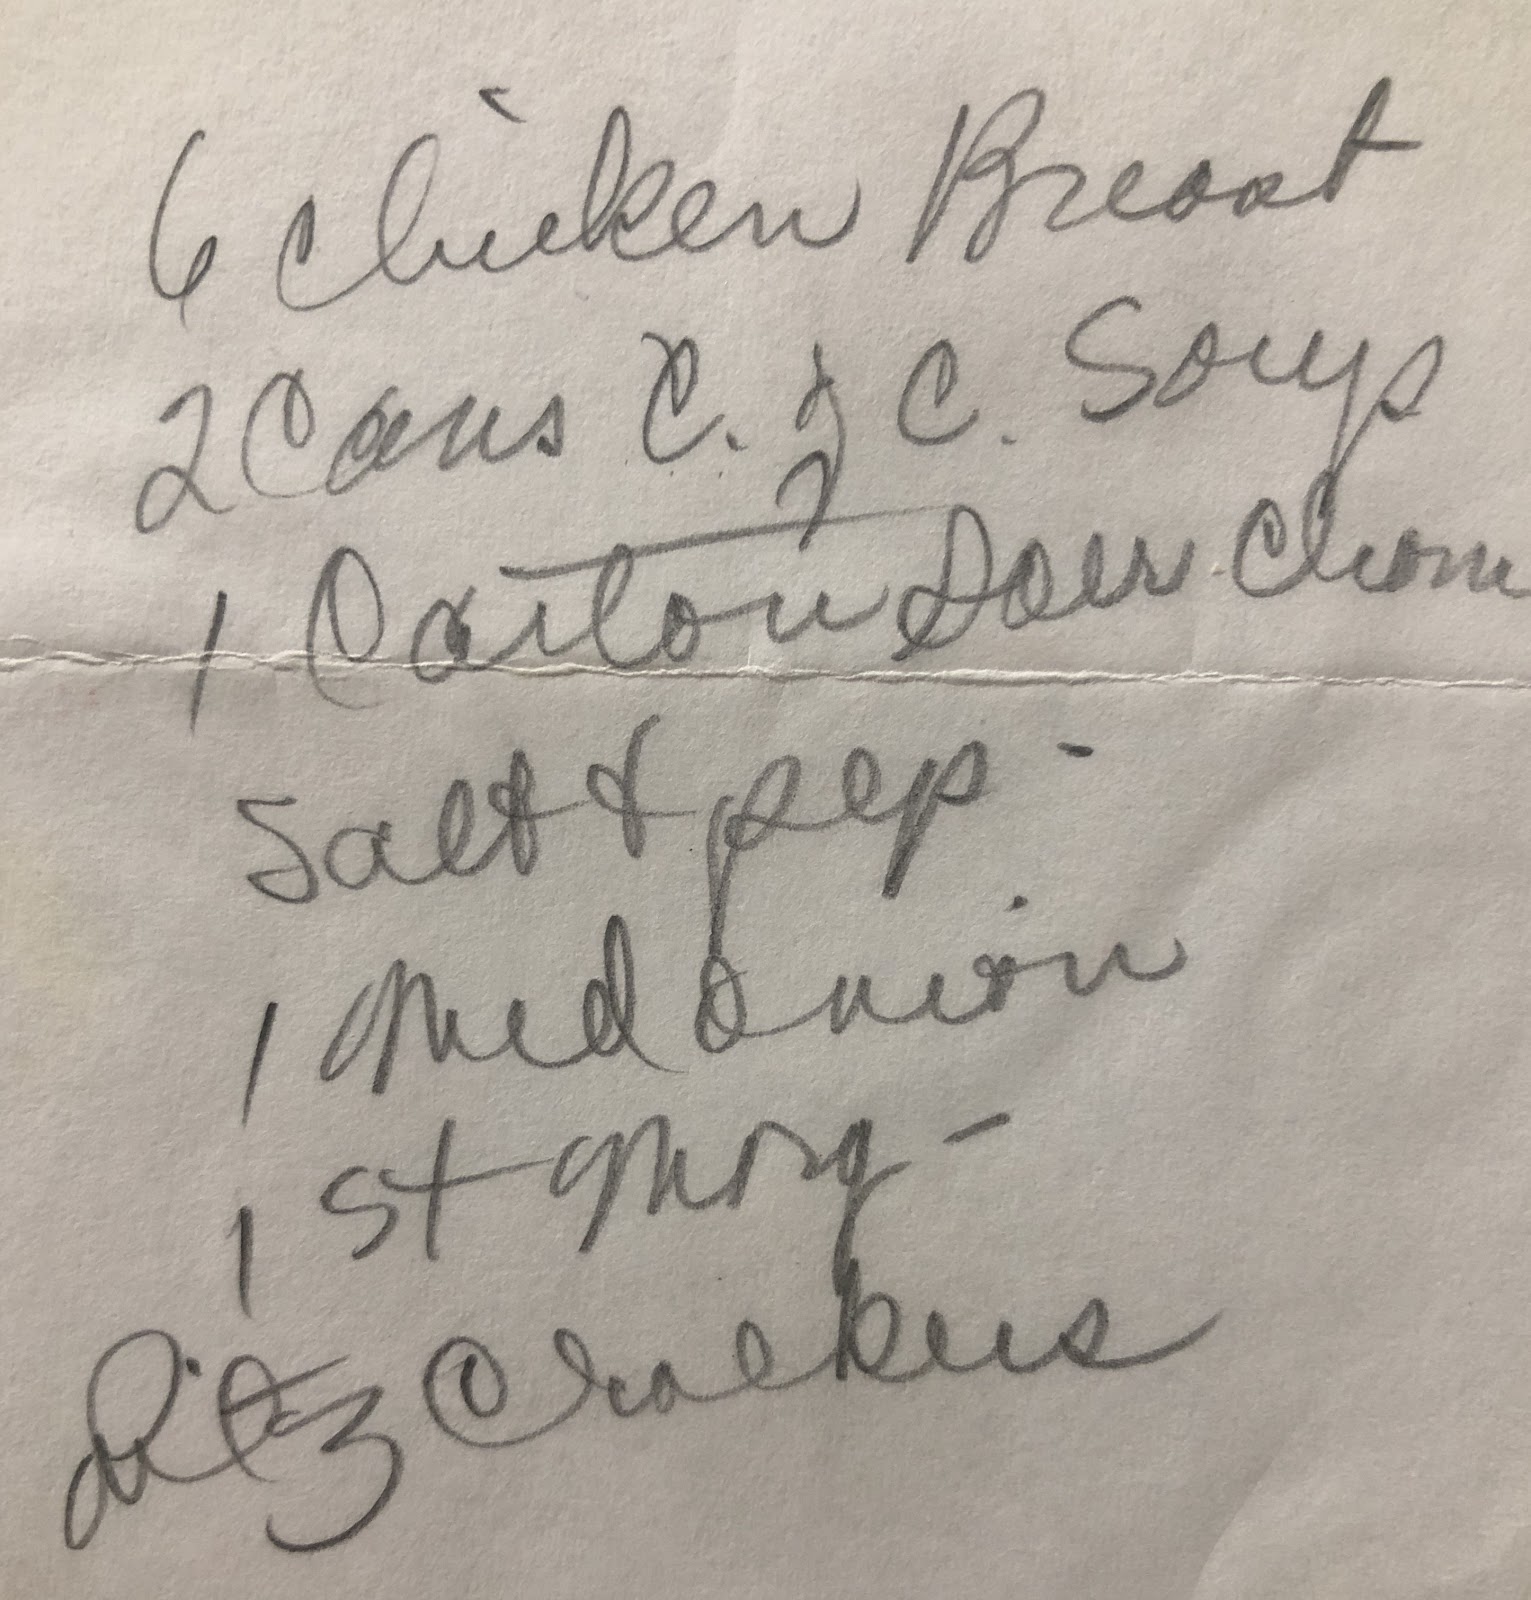 6 Chicken Breast
2 Cans C. of C. Soup
1 Carton Sour Cream
Salt & pep -
1 Med Onion
1 St Marg -
Ritz Crackers